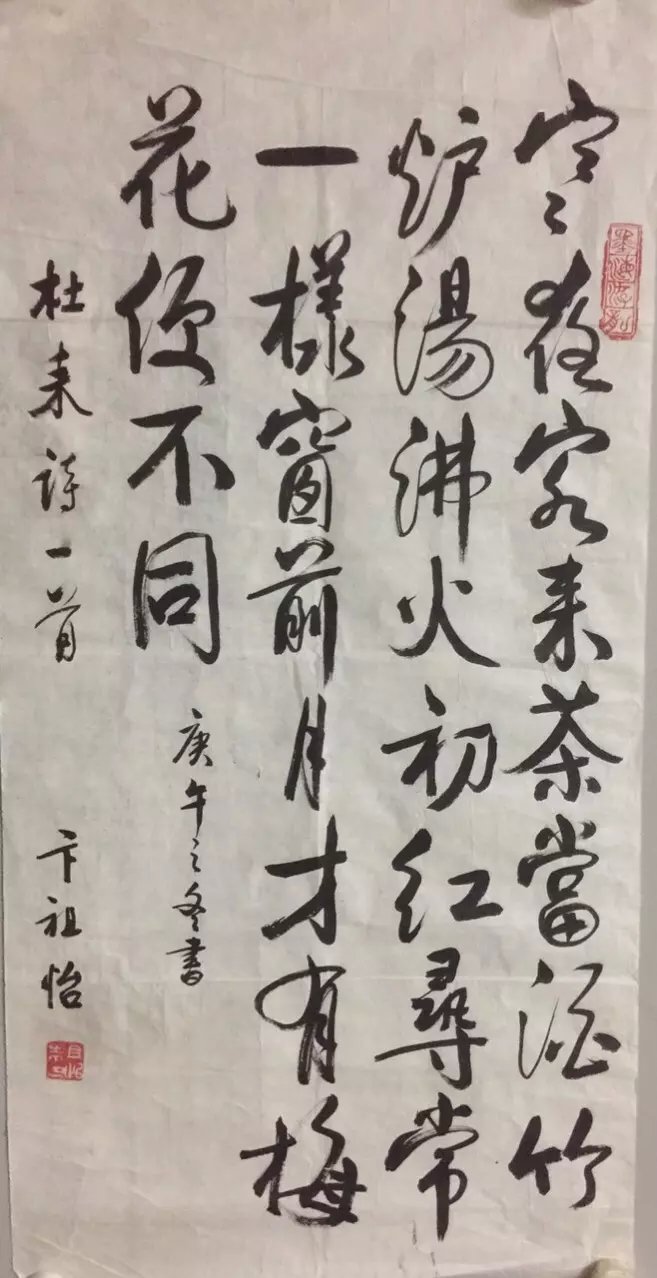 寒夜客来茶當酒竹
炉湯沸火初红尋常
一樣窗前月才有梅
花便不同
庚午之冬書
杜来詩一首
卞祖怡